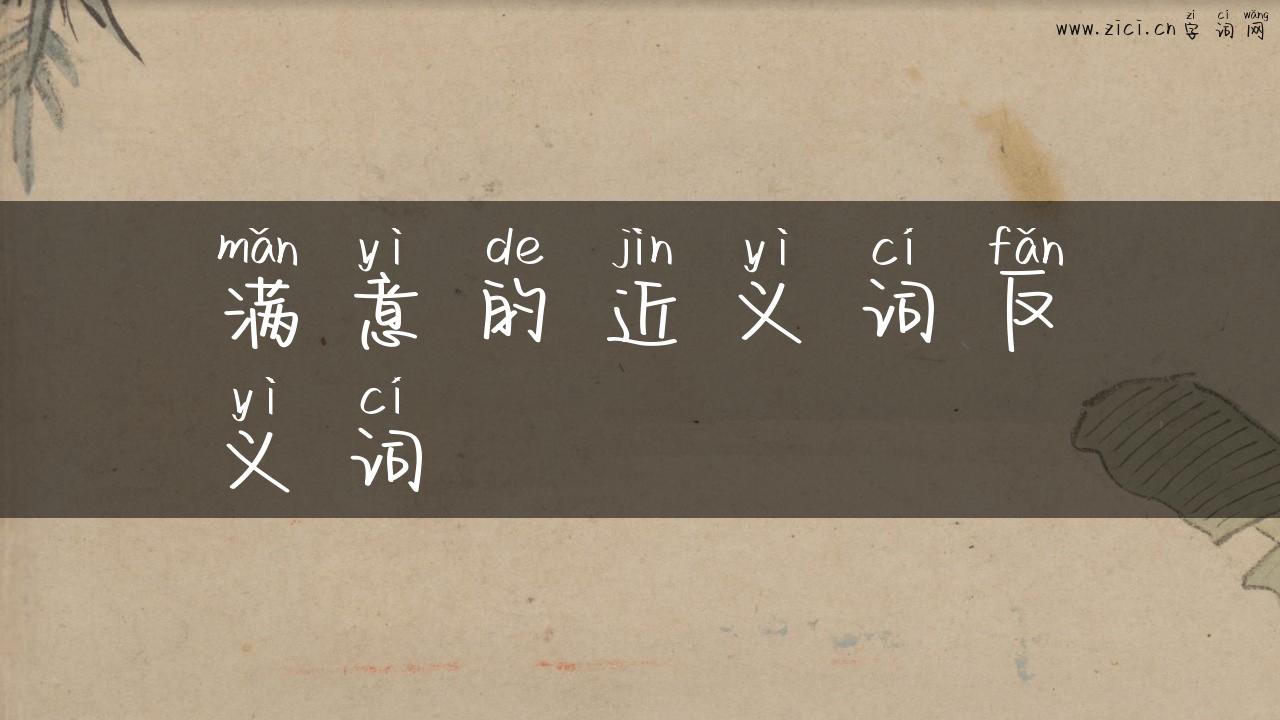 zì cí wǎng
www.zici.cn 字词网
mǎn yì de jìn yì cí fǎn
满意的近义词反
yì cí
义词